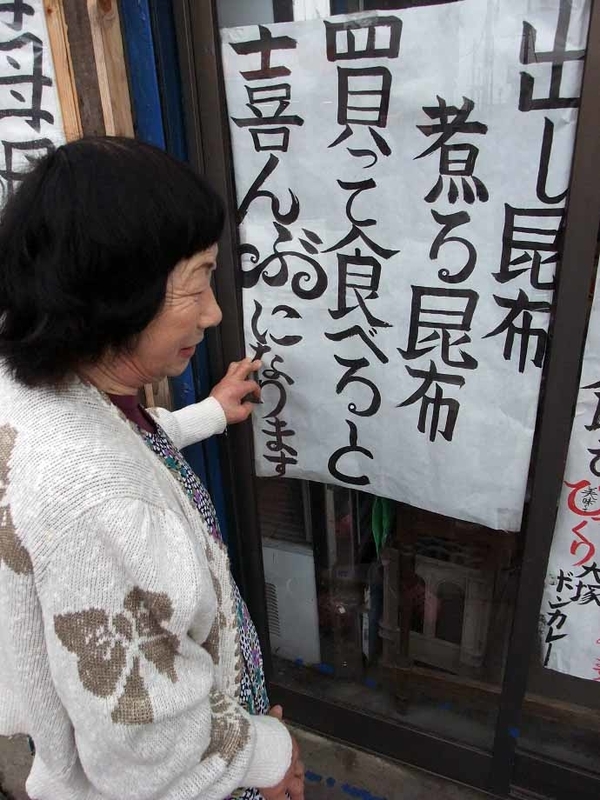 出し昆布
煮る昆布
買って食べると
喜んぶになります
びっくり
大塚
ボンカレー
母